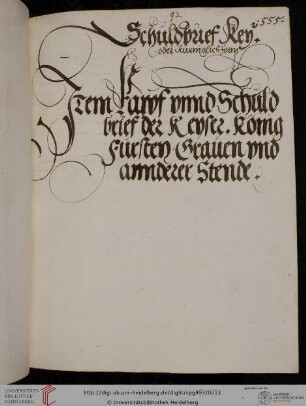 92
v 555.
Schuldbrief Key.
oder Kuniglich fong
Item Kauf vnnd Schuld
brief der Keyser. König
Fursten Grauen vnd
annderer Stende.
UNIVERSITÄTS-
BIBLIOTHEK
HEIDELBERG
http://digi.ub.uni-heidelberg.de/diglit/cpg493/0213
© Universitätsbibliothek Heidelberg